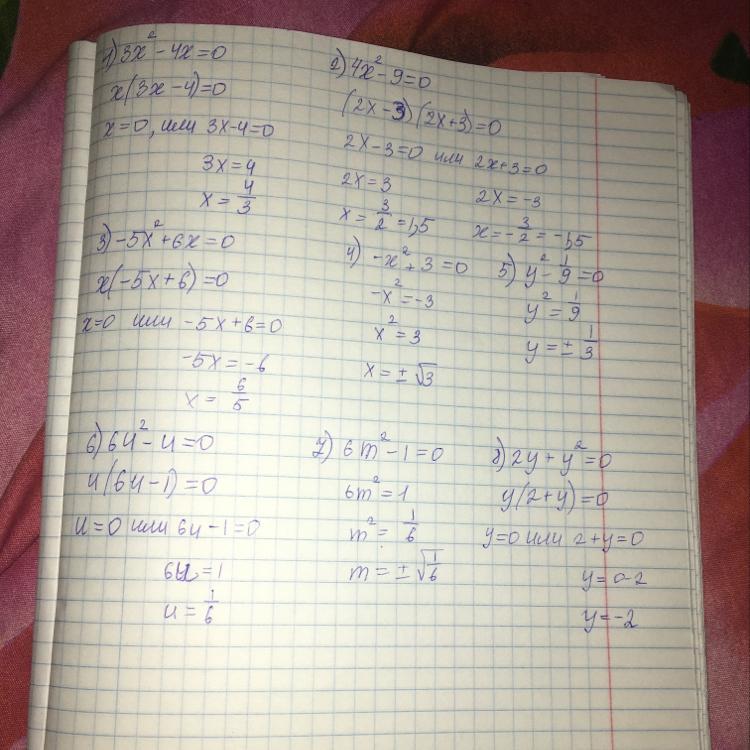 1) 3x² - 4x = 0
x(3x - 4) = 0
x = 0, или 3x - 4 = 0
3x = 4
x = 4/3
2) 4x² - 9 = 0
(2x - 3)(2x + 3) = 0
2x - 3 = 0 или 2x + 3 = 0
2x = 3
x = 3/2 = 1,5
2x = -3
x = -3/2 = -1,5
3) -5x² + 6x = 0
x(-5x + 6) = 0
x = 0 или -5x + 6 = 0
-5x = -6
x = 6/5
4) -x² + 3 = 0
-x² = -3
x² = 3
x = ±√3
5) y² - 1/9 = 0
y² = 1/9
y = ± 1/3
6) 6u² - u = 0
u(6u - 1) = 0
u = 0 или 6u - 1 = 0
6u = 1
u = 1/6
7) 6m² - 1 = 0
6m² = 1
m² = 1/6
m = ±√1/6
8) 2y + y² = 0
y(2 + y) = 0
y = 0 или 2 + y = 0
y = 0 - 2
y = -2